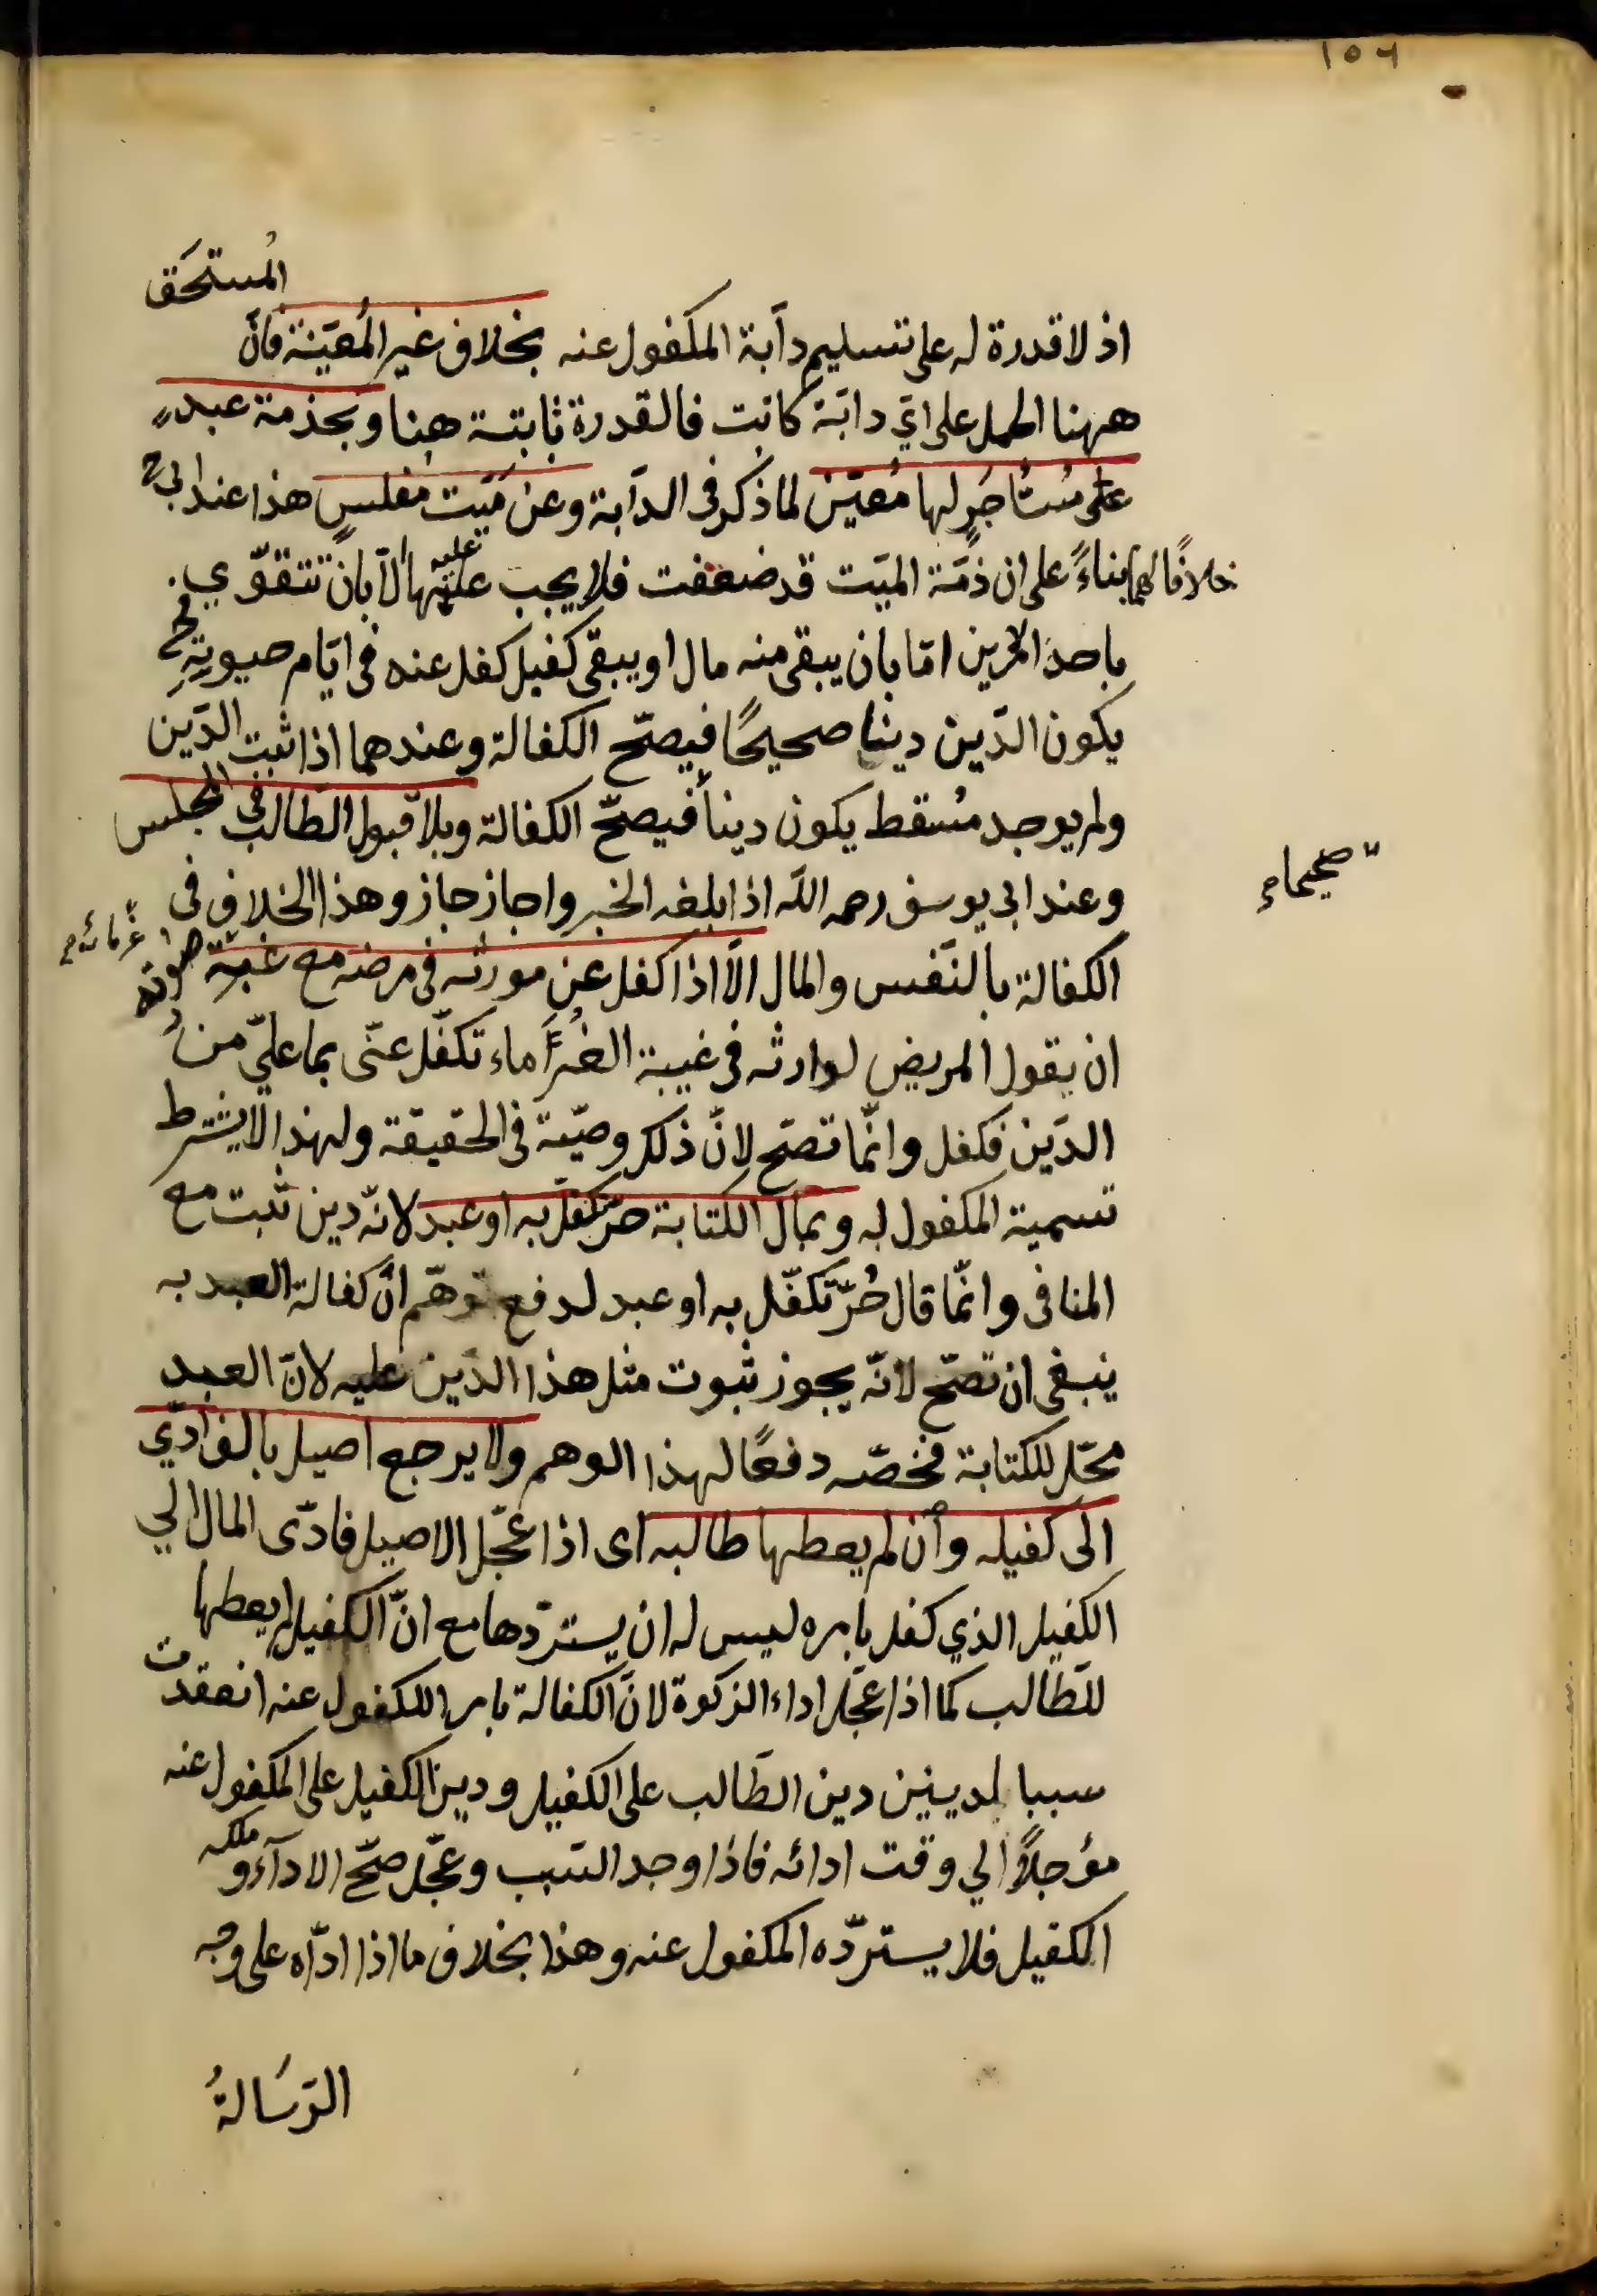 ١٥٦
المستحَق
اذ لا قدرة له على تسليم دآبة المكفول عنه بخلاف غير المُعيّنة فانّ
ههنا الحمل على ايّ دابّة كانت فالقدرة ثابتة هنا وبخدمة عبد
على مُستأجَرٍ لها مُعيّن لما ذكر فى الدآبة وعن مَيّت مفلسٍ هذا عند ابى ح
خلافًا لهما بناءً على ان ذمّة الميّت قد ضعفت فلا يجب عليها الّا بان تتقوّي
عليه
باحد الامرين امّا بان يبقى منه مال او يبقى كفيل كفل عنه فى ايّام حيوته فح
يكون الدّين دينا صحيحًا فيصحّ الكفالة وعندهما اذا ثبت الدّين
ولم يوجد مُسقط يكون دينا فيصحّ الكفالة وبلا قبول الطّالب فى المجلس
صحيحا م
وعند ابى يوسف رحمه اللّه اذا بلغه الخبر واجاز جاز وهذا الخلاف فى
غُرمائه م
الكفالة بالنّفس والمال الّا اذا كفل عن مورثه فى مرضه مع غيبة صورته
ان يقول المريض لوارثه فى غيبة الغُرَماء تكفّل عنّى بما عليّ من
الدّين فكفل وانّما تصحّ لانّ ذلك وصيّة فى الحقيقة ولهذا لا يشترط
تسمية المكفول له وبمال الكتابة حرّ تكفّل به او عبد لانّه دين ثبت مع
المنافى وانّما قال حُرّ تكفّل به او عبد لدفع توهّم انّ كفالة العبد به
ينبغى ان تصحّ لانّه يجوز ثبوت مثل هذا الدّين عليه لانّ العبد
محّل للكتابة فخصّه دفعًا لهذا الوهم ولا يرجع اصيل بالف ادّي
الى كفيله وان لم يعطها طالبه اى اذا عجّل الاصيل فادّى المال الي
الكفيل الذي كفل بامره ليس له ان يستردّها مع انّ الكفيل لم يعطها
للطّالب كما اذا عجّل اداء الزكوة لانّ الكفالة بامر المكفول عنه انعقدت
سببا لدينين دين الطّالب على الكفيل ودين الكفيل على المكفول عنه
مؤجلًا الي وقت ادائه فاذا وجد السّبب وعجّل صحّ الادآء وملكه
الكفيل فلا يستردّه المكفول عنه وهذا بخلاف ما اذا ادّاه على وجه
الرّسَالةُ